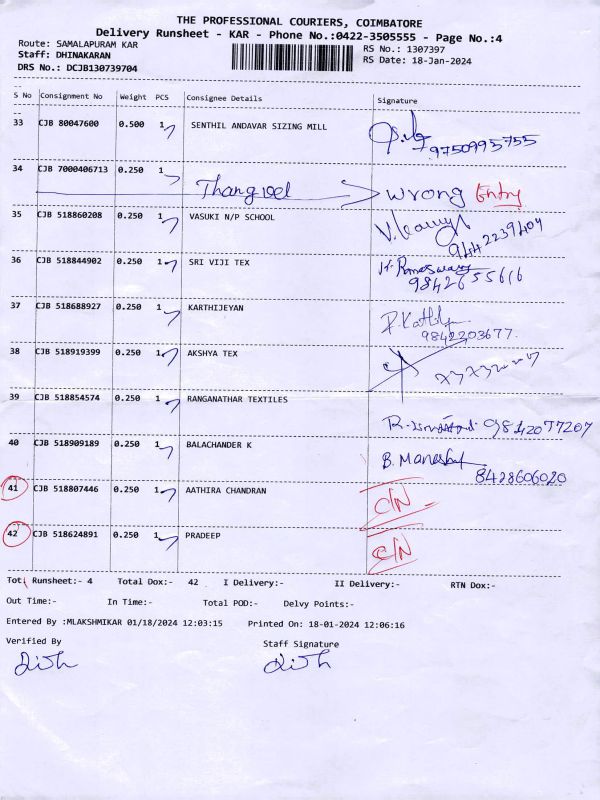 THE PROFESSIONAL COURIERS, COIMBATORE
Delivery Runsheet - KAR - Phone No.:0422-3505555 - Page No.:4
Route: SAMALAPURAM KAR
RS No.: 1307397
Staff: DHINAKARAN
RS Date: 18-Jan-2024
DRS No.: DCJB130739704
S No Consignment No Weight PCS Consignee Details Signature
33 CJB 80047600 0.500 1 SENTHIL ANDAVAR SIZING MILL
9750995755
34 CJB 7000406713 0.250 1
Thangvel wrong Entry
35 CJB 518860208 0.250 1 VASUKI N/P SCHOOL
9442239404
36 CJB 518844902 0.250 1 SRI VIJI TEX
9842655616
37 CJB 518688927 0.250 1 KARTHIJEYAN
9842203677
38 CJB 518919399 0.250 1 AKSHYA TEX
39 CJB 518854574 0.250 1 RANGANATHAR TEXTILES
R. 9842077207
40 CJB 518909189 0.250 1 BALACHANDER K
B. 8428606020
41 CJB 518807446 0.250 1 AATHIRA CHANDRAN
C/N
42 CJB 518624891 0.250 1 PRADEEP
C/N
Tot: Runsheet:- 4 Total Dox:- 42 I Delivery:- II Delivery:- RTN Dox:-
Out Time:- In Time:- Total POD:- Delvy Points:-
Entered By :MLAKSHMIKAR 01/18/2024 12:03:15 Printed On: 18-01-2024 12:06:16
Verified By Staff Signature